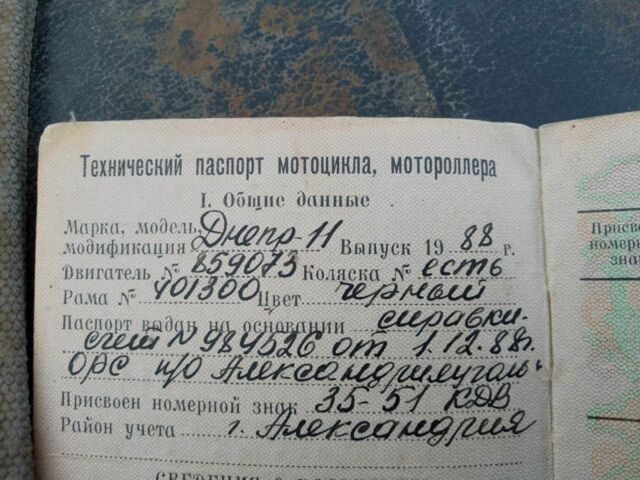 Технический паспорт мотоцикла, мотороллера
I. Общие данные
Марка, модель,
модификация Днепр-11 Выпуск 1988 г.
Двигатель № 859073 Коляска № есть
Рама № 401300 Цвет черный
Паспорт выдан на основании справки-
счет N 984526 от 1.12.88г.
ОРС п/о Александрияуголь
Присвоен номерной знак 35-51 КДВ
Район учета г. Александрия
Присвоен
номерной
знак